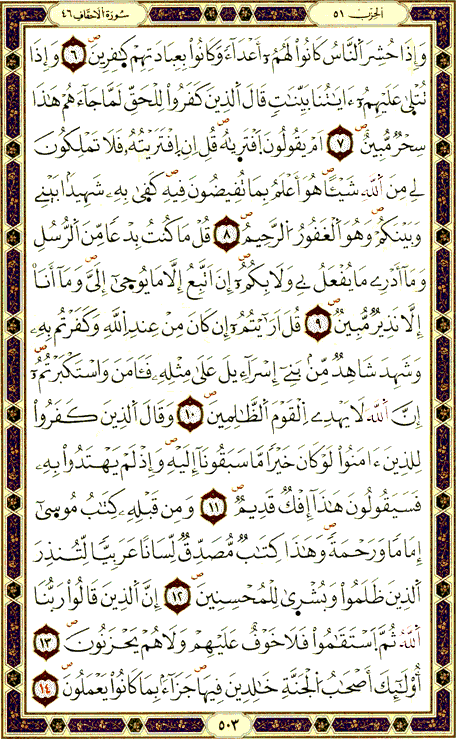 الحزب ٥١
سورة الأحقاف ٤٦
وَإِذَا حُشِرَ اَلنَّاسُ كَانُواْ لَهُمُۥٓ أَعْدَآءٗ وَكَانُواْ بِعِبَادَتِهِمْ كٰ۪فِرِينَۖ ٦ وَإِذَا
تُتْلَىٰ عَلَيْهِمُۥٓ ءَايَٰتُنَا بَيِّنَٰتٖ قَالَ اَلذِينَ كَفَرُواْ لِلْحَقِّ لَمَّا جَآءَهُمْ هَٰذَا
سِحْرٞ مُّبِينٌۖ ٧ اَمْ يَقُولُونَ اَفْتَر۪ىٰهُۖ قُلِ اِنِ اِفْتَرَيْتُهُۥ فَلَا تَمْلِكُونَ
لِے مِنَ اَللَّهِ شَيْـٔاًۖ هُوَ أَعْلَمُ بِمَا تُفِيضُونَ فِيهِۖ كَف۪ىٰ بِهِۦ شَهِيداَۢ بَيْنِے
وَبَيْنَكُمْۖ وَهُوَ اَلْغَفُورُ اُلرَّحِيمُۖ ٨ قُلْ مَا كُنتُ بِدْعاٗ مِّنَ اَلرُّسُلِ
وَمَآ أَدْرِے مَا يُفْعَلُ بِے وَلَا بِكُمُۥٓۖ إِنَ اَتَّبِعُ إِلَّا مَا يُوح۪ىٰٓ إِلَيَّ وَمَآ أَنَا۠
إِلَّا نَذِيرٞ مُّبِينٞۖ ٩ قُلَ اَرَٰٓيْتُمُۥٓ إِن كَانَ مِنْ عِندِ اِللَّهِ وَكَفَرْتُم بِهِۦ
وَشَهِدَ شَاهِدٞ مِّنۢ بَنِےٓ إِسْرَآءِيلَ عَلَىٰ مِثْلِهِۦ فَـَٔامَنَ وَاسْتَكْبَرْتُمُۥٓۖ
إِنَّ اَللَّهَ لَا يَهْدِے اِلْقَوْمَ اَلظَّٰلِمِينَۖ ١٠ وَقَالَ اَلذِينَ كَفَرُواْ
لِلذِينَ ءَامَنُواْ لَوْ كَانَ خَيْراٗ مَّا سَبَقُونَآ إِلَيْهِۖ وَإِذْ لَمْ يَهْتَدُواْ بِهِۦ
فَسَيَقُولُونَ هَٰذَآ إِفْكٞ قَدِيمٞۖ ١١ وَمِن قَبْلِهِۦ كِتَٰبُ مُوس۪ىٰٓ
إِمَاماٗ وَرَحْمَةٗۖ وَهَٰذَا كِتَٰبٞ مُّصَدِّقٞ لِّسَاناً عَرَبِيّاٗ لِّتُنذِرَ
اَلذِينَ ظَلَمُواْ وَبُشْر۪ىٰ لِلْمُحْسِنِينَۖ ١٢ إِنَّ اَلذِينَ قَالُواْ رَبُّنَا
اَللَّهُ ثُمَّ اَسْتَقَٰمُواْ فَلَا خَوْفٌ عَلَيْهِمْ وَلَا هُمْ يَحْزَنُونَۖ ١٣
أُوْلَٰٓئِكَ أَصْحَٰبُ اُلْجَنَّةِ خَٰلِدِينَ فِيهَا جَزَآءَۢ بِمَا كَانُواْ يَعْمَلُونَۖ ١٤
٥٠٣